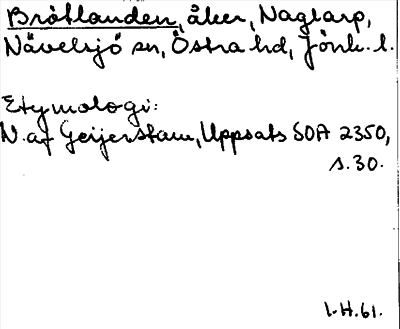 Brötlanden, åker, Naglarp,
Nävelsjö sn, Östra hd, Jönk. l.
Etymologi:
N. af Geijerstam, Uppsats SOA 2350,
s. 30.
I.H. 61.